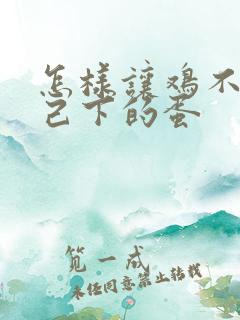 怎样讓鸡不
己下的蛋
笕一成
未经同意禁止转载